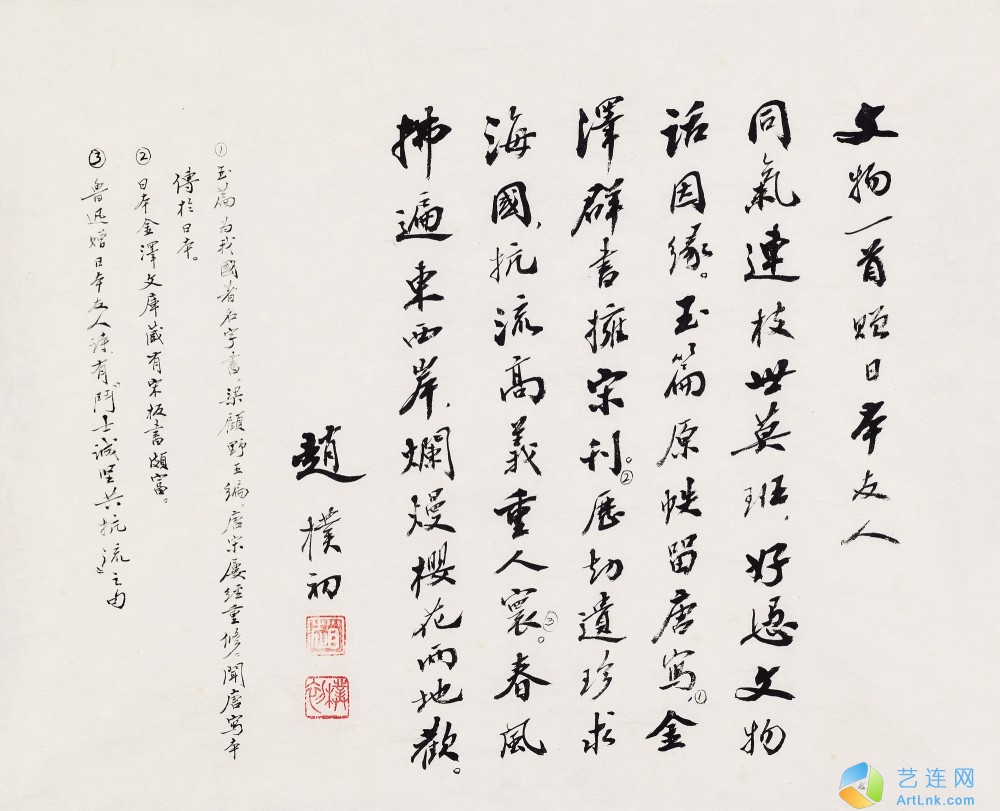 文物一首贈日本友人
同氣連枝世莫班，好憑文物
話因緣。玉篇原帙留唐寫，①金
澤群書擁宋刊。②歷劫遺珍求
海國，抗流高義重人寰。③春風
拂遍東西岸，爛熳櫻花兩地歡。
趙樸初
①玉篇为我國著名字書，梁顧野王编，唐宋屢經重修，聞唐寫本
傳於日本。
②日本金澤文庫藏有宋板書頗富。
③魯迅贈日本友人詩，有鬥士誠堅共抗流之句
艺连网
ArtLnk.com